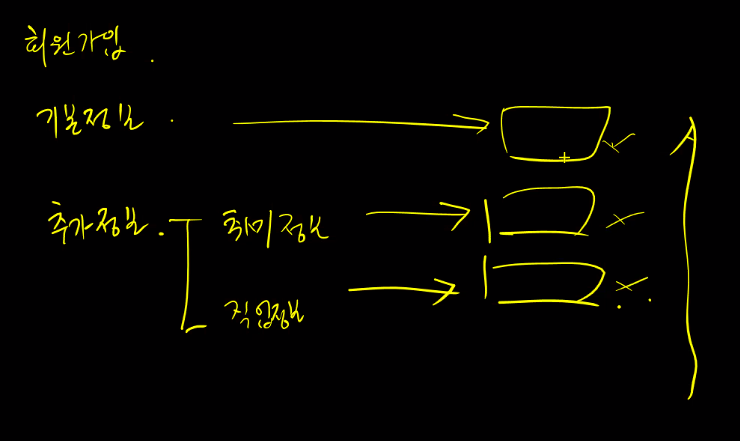 회원가입.
기본정보.
추가정보.
취미정보
직업정보